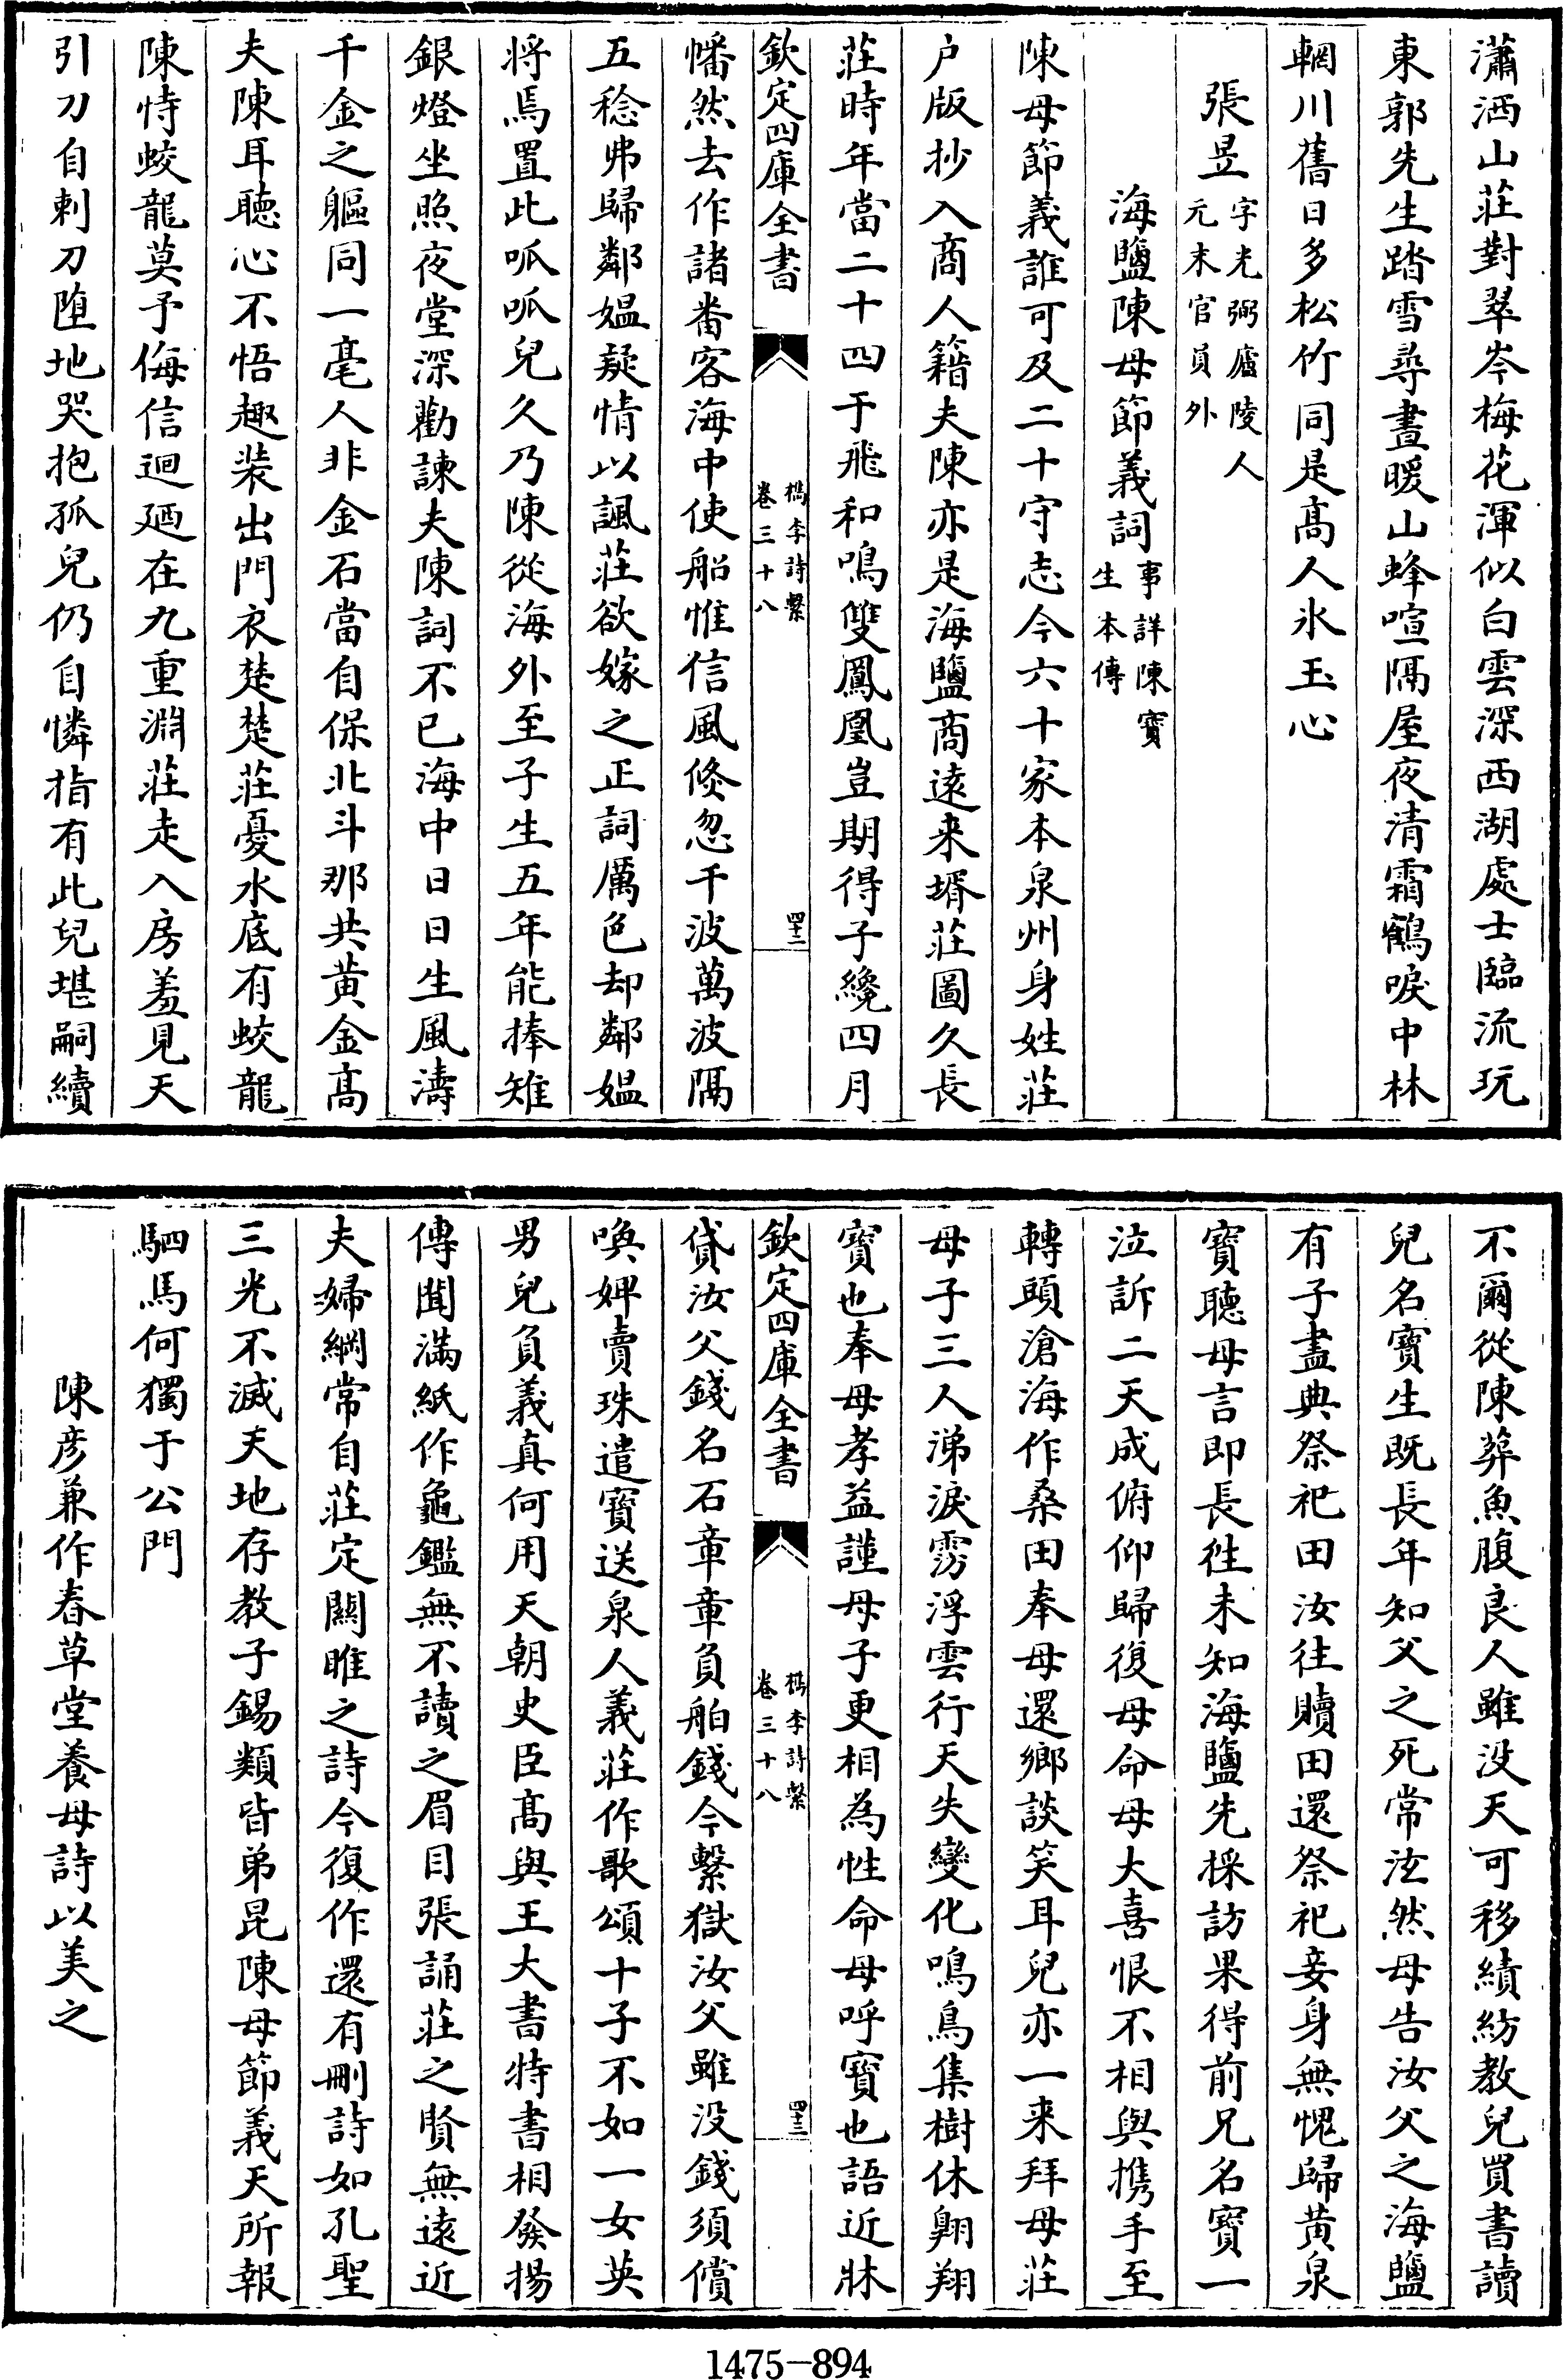 瀟洒山莊對翠岑梅花渾似白雲深西湖處士臨流玩
東郭先生踏雪尋晝暖山蜂喧隔屋夜清霜鶴唳中林
輞川舊日多松竹同是髙人氷玉心
張昱字光弼廬陵人
元末官員外
海鹽陳母節義詞事詳陳寶
生本傳
陳母節義誰可及二十守志今六十家本泉州身姓莊
户版抄入商人籍夫陳亦是海鹽商逺來壻莊圖久長
莊時年當二十四于飛和鳴雙鳳凰豈期得子纔四月
欽定四庫全書
檇李詩繫
卷三十八
四十二
幡然去作諸番客海中使船惟信風倐忽千波萬波隔
五稔弗歸鄰媼疑情以諷莊欲嫁之正詞厲色却鄰媼
將焉置此呱呱兒久乃陳從海外至子生五年能捧雉
銀燈坐照夜堂深勸諫夫陳詞不已海中日日生風濤
千金之軀同一毫人非金石當自保北斗那共黄金髙
夫陳耳聽心不悟趣裝出門衣楚楚莊憂水底有蛟龍
陳恃蛟龍莫予侮信迴迺在九重淵莊走入房羞見天
引刀自剌刀堕地哭抱孤兒仍自憐指有此兒堪嗣續
不爾從陳葬魚腹良人雖没天可移績紡教兒買書讀
兒名寶生既長年知父之死常泫然母告汝父之海鹽
有子盡典祭祀田汝往贖田還祭祀妾身無愧歸黄泉
寳聴母言即長徃未知海鹽先採訪果得前兄名寳一
泣訴二天成俯仰歸復母命母大喜恨不相與携手至
轉頭滄海作桑田奉母還鄉談笑耳兒亦一来拜母莊
母子三人涕淚雱浮雲行天失變化鳴鳥集樹休翺翔
寳也奉母孝益謹母子更相為性命母呼寳也語近牀
欽定四庫全書
檇李詩繫
卷三十八
四十三
貸汝父錢名石章章負舶錢今繫獄汝父雖没錢須償
喚婢賣珠遣寳送泉人義莊作歌頌十子不如一女英
男兒負義真何用天朝史臣髙與王大書特書相發揚
傳聞滿紙作龜鑑無不讀之眉目張誦莊之賢無逺近
夫婦綱常自莊定關雎之詩今復作還有刪詩如孔聖
三光不滅天地存教子錫類皆弟昆陳母節義天所報
駟馬何獨于公門
陳彦兼作春草堂養母詩以美之
1475-894